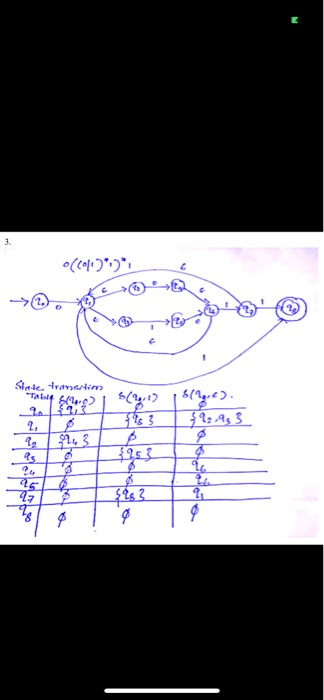 3.
0((0/1)*1)*1
ε
q0 0 q1 ε q2 0 q4 ε
ε q3 1 q5 ε q6 1 q7 1 q8
ε
1
State transition
Table δ(q,0) δ(q,1) δ(q,ε).
q0 {q1} ϕ ϕ
q1 ϕ {q8} {q2,q3}
q2 {q4} ϕ ϕ
q3 ϕ {q5} ϕ
q4 ϕ ϕ q6
q5 ϕ ϕ q6
q7 ϕ {q8} q1
q8 ϕ ϕ ϕ